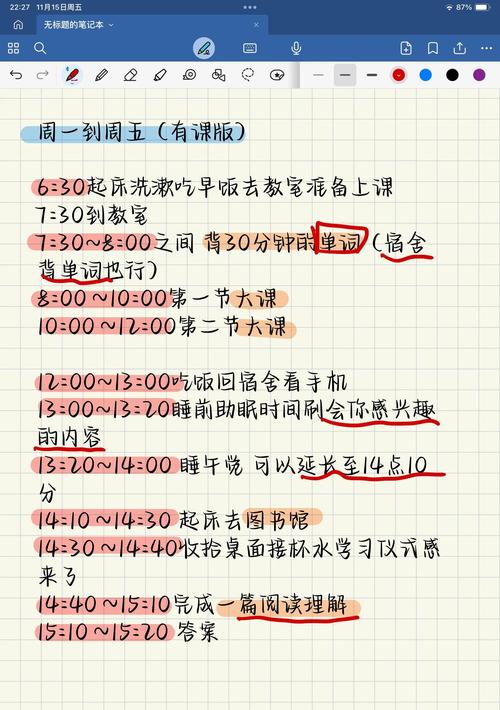 22:27 11月15日周五
87%
无标题的笔记本
周一到周五（有课版）
6:30起床洗漱吃早饭去教室准备上课
7:30到教室
7:30~8:00之间 背30分钟的单词（宿舍
背单词也行）
8:00~10:00第一节大课
10:00~12:00第二节大课
12:00~13:00吃饭回宿舍看手机
13:00~13:20睡前助眠时间刷会你感兴趣
的内容
13:20~14:00 睡午觉 可以延长至14点10
分
14:10~14:30 起床去图书馆
14:30~14:40收拾桌面接杯水学习仪式感
来了
14:40~15:10完成一篇阅读理解
15:10~15:20 答案